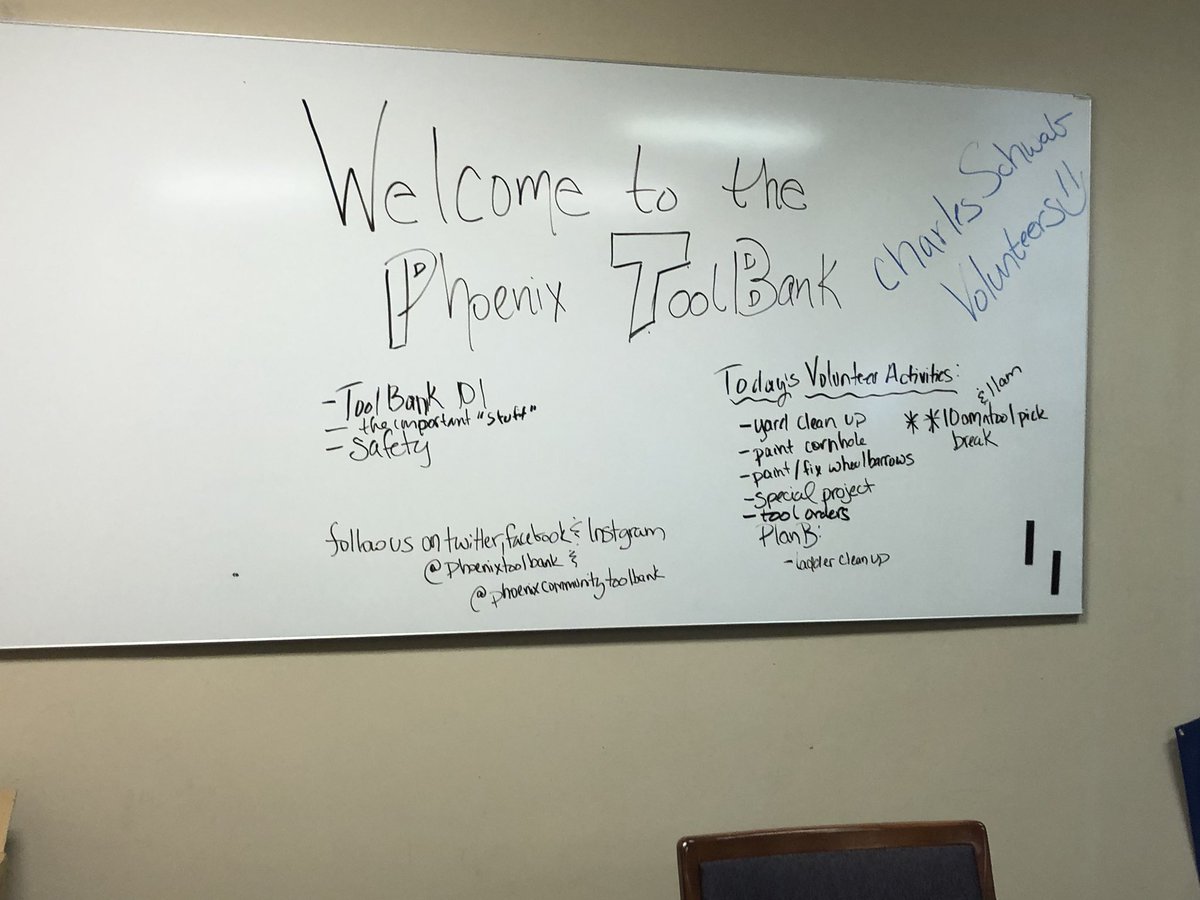 Welcome to the
Phoenix ToolBank
Charles Schwab
Volunteers!!
- ToolBank 101
- the important "stuff"
- Safety
Today's Volunteer Activities:
- yard clean up
- paint cornhole
- paint/fix wheelbarrows
- special project
- tool orders
Plan B:
- ladder clean up
& 11am
** 10am tool pick
break
follow us on twitter, facebook & Instgram
@phoenixtoolbank &
@phoenixcommunitytoolbank